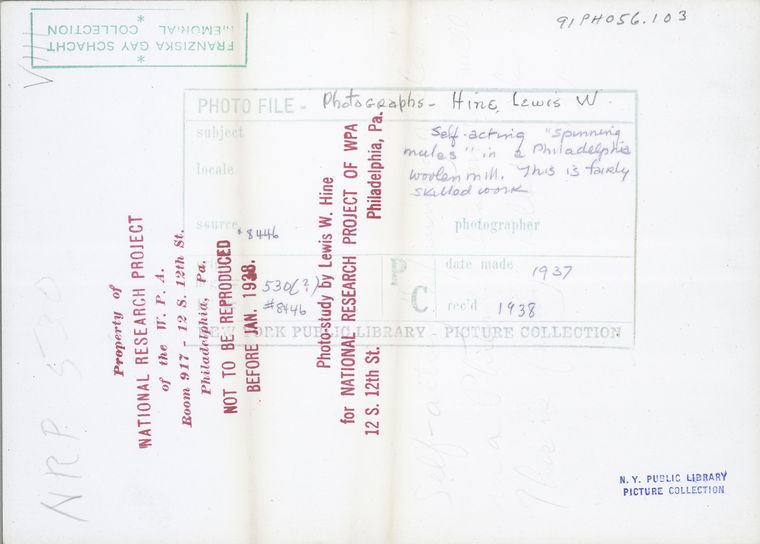 91PH056.103
FRANZISKA GAY SCHACHT
MEMORIAL
COLLECTION
VIII
PHOTO FILE - Photographs - Hine, Lewis W.
subject
Self-acting "spinning
mules" in a Philadelphia
woolen mill. This is fairly
skilled work
locale
source
#8446
photographer
530(?)
#8446
P
C
date made 1937
rec'd 1938
NEW YORK PUBLIC LIBRARY - PICTURE COLLECTION
Property of
NATIONAL RESEARCH PROJECT
of the W. P. A.
Room 917 - 12 S. 12th St.
Philadelphia, Pa.
NOT TO BE REPRODUCED
BEFORE JAN. 1938.
Photo-study by Lewis W. Hine
for NATIONAL RESEARCH PROJECT OF WPA
12 S. 12th St. Philadelphia, Pa.
NRP 530
Self-acting
This is
N. Y. PUBLIC LIBRARY
PICTURE COLLECTION